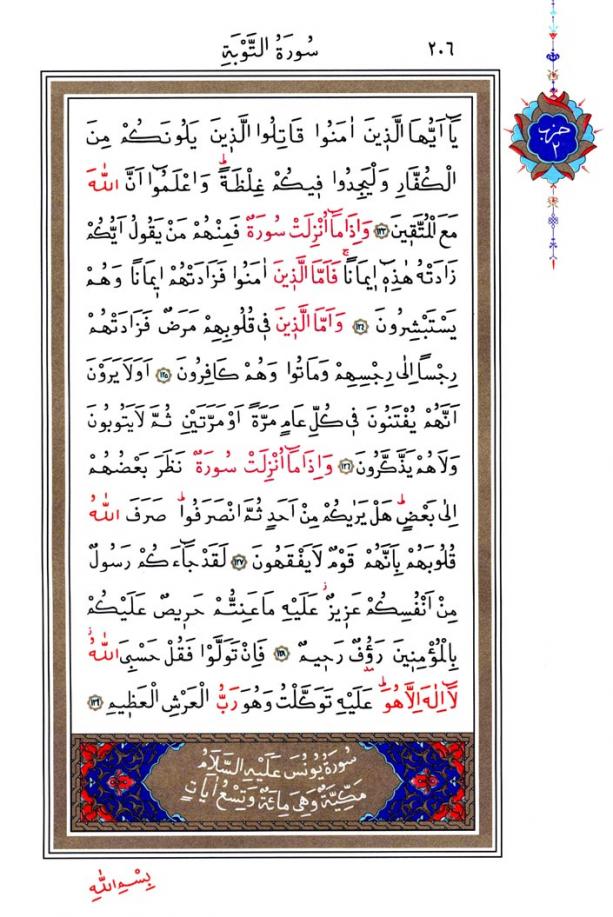 سُورَةُ التَّوْبَةِ ٢٠٦
حزب ٢
يَٓا اَيُّهَا الَّذ۪ينَ اٰمَنُوا قَاتِلُوا الَّذ۪ينَ يَلُونَكُمْ مِنَ
الْكُفَّارِ وَلْيَجِدُوا ف۪يكُمْ غِلْظَةًۜ وَاعْلَمُٓوا اَنَّ اللّٰهَ
مَعَ الْمُتَّق۪ينَ ﴿١٢٣﴾ وَاِذَا مَٓا اُنْزِلَتْ سُورَةٌ فَمِنْهُمْ مَنْ يَقُولُ اَيُّكُمْ
زَادَتْهُ هٰذِه۪ٓ ا۪يمَانًاۚ فَاَمَّا الَّذ۪ينَ اٰمَنُوا فَزَادَتْهُمْ ا۪يمَانًا وَهُمْ
يَسْتَبْشِرُونَ ﴿١٢٤﴾ وَاَمَّا الَّذ۪ينَ ف۪ي قُلُوبِهِمْ مَرَضٌ فَزَادَتْهُمْ
رِجْسًا اِلٰى رِجْسِهِمْ وَمَاتُوا وَهُمْ كَافِرُونَ ﴿١٢٥﴾ اَوَلَا يَرَوْنَ
اَنَّهُمْ يُفْتَنُونَ ف۪ي كُلِّ عَامٍ مَرَّةً اَوْ مَرَّتَيْنِ ثُمَّ لَا يَتُوبُونَ
وَلَا هُمْ يَذَّكَّرُونَ ﴿١٢٦﴾ وَاِذَا مَٓا اُنْزِلَتْ سُورَةٌ نَظَرَ بَعْضُهُمْ
اِلٰى بَعْضٍۜ هَلْ يَرٰيكُمْ مِنْ اَحَدٍ ثُمَّ انْصَرَفُواۜ صَرَفَ اللّٰهُ
قُلُوبَهُمْ بِاَنَّهُمْ قَوْمٌ لَا يَفْقَهُونَ ﴿١٢٧﴾ لَقَدْ جَٓاءَكُمْ رَسُولٌ
مِنْ اَنْفُسِكُمْ عَز۪يزٌ عَلَيْهِ مَا عَنِتُّمْ حَر۪يصٌ عَلَيْكُمْ
بِالْمُؤْمِن۪ينَ رَؤُ۫فٌ رَح۪يمٌ ﴿١٢٨﴾ فَاِنْ تَوَلَّوْا فَقُلْ حَسْبِيَ اللّٰهُۘ
لَٓا اِلٰهَ اِلَّا هُوَۜ عَلَيْهِ تَوَكَّلْتُ وَهُوَ رَبُّ الْعَرْشِ الْعَظ۪يمِ ﴿١٢٩﴾
سُورَةُ يُونُسَ عَلَيْهِ السَّلَامُ
مَكِّيَّةٌ وَهِيَ مِائَةٌ وَتِسْعُ اٰيَاتٍ
بِسْمِ اللّٰهِ